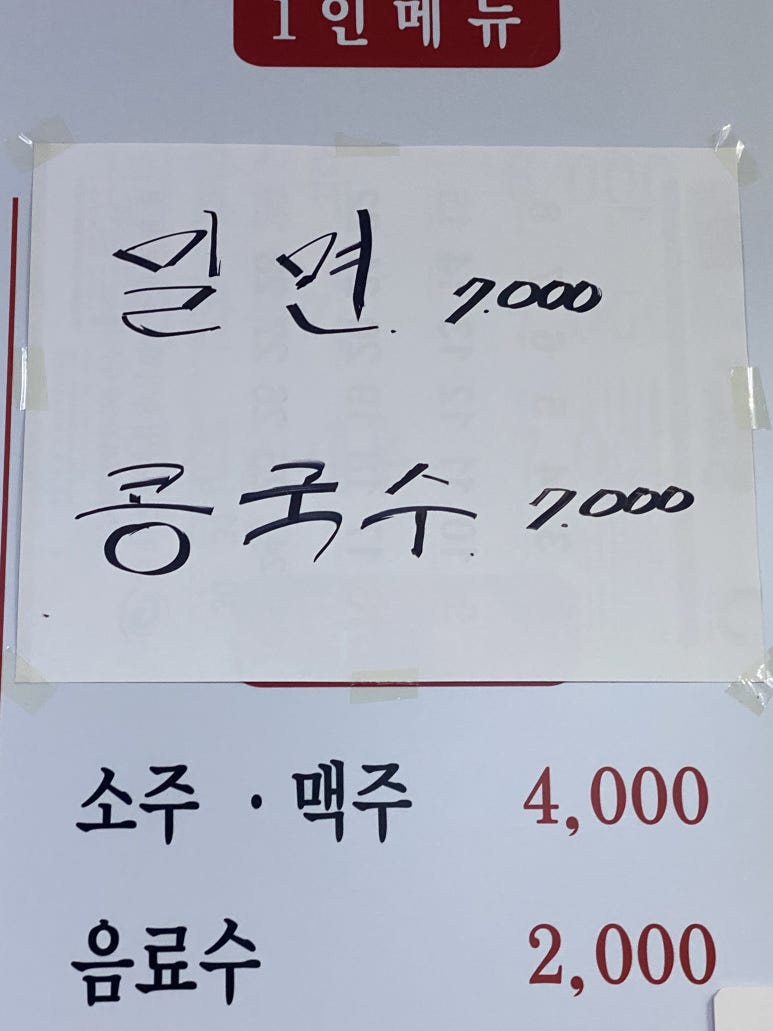 1인메뉴
밀면. 7.000
콩국수. 7.000
소주 · 맥주 4,000
음료수 2,000